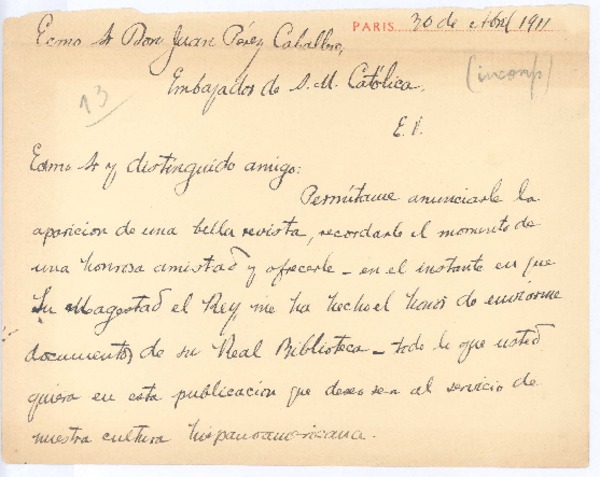 PARIS 30 de Abril 1911
Excmo Sr Don Juan Pérez Caballero,
(incomp)
Embajador de S. M. Católica.
13
E. P.
Excmo Sr y distinguido amigo:
Permítame anunciarle la
aparicion de una bella revista, recordarle el momento de
una honrosa amistad y ofrecerle - en el instante en que
Su Magestad el Rey, me ha hecho el honor de enviarme
documentos de su Real Biblioteca - todo lo que usted
quiera en esta publicacion que deseo sea al servicio de
nuestra cultura hispanoamericana.